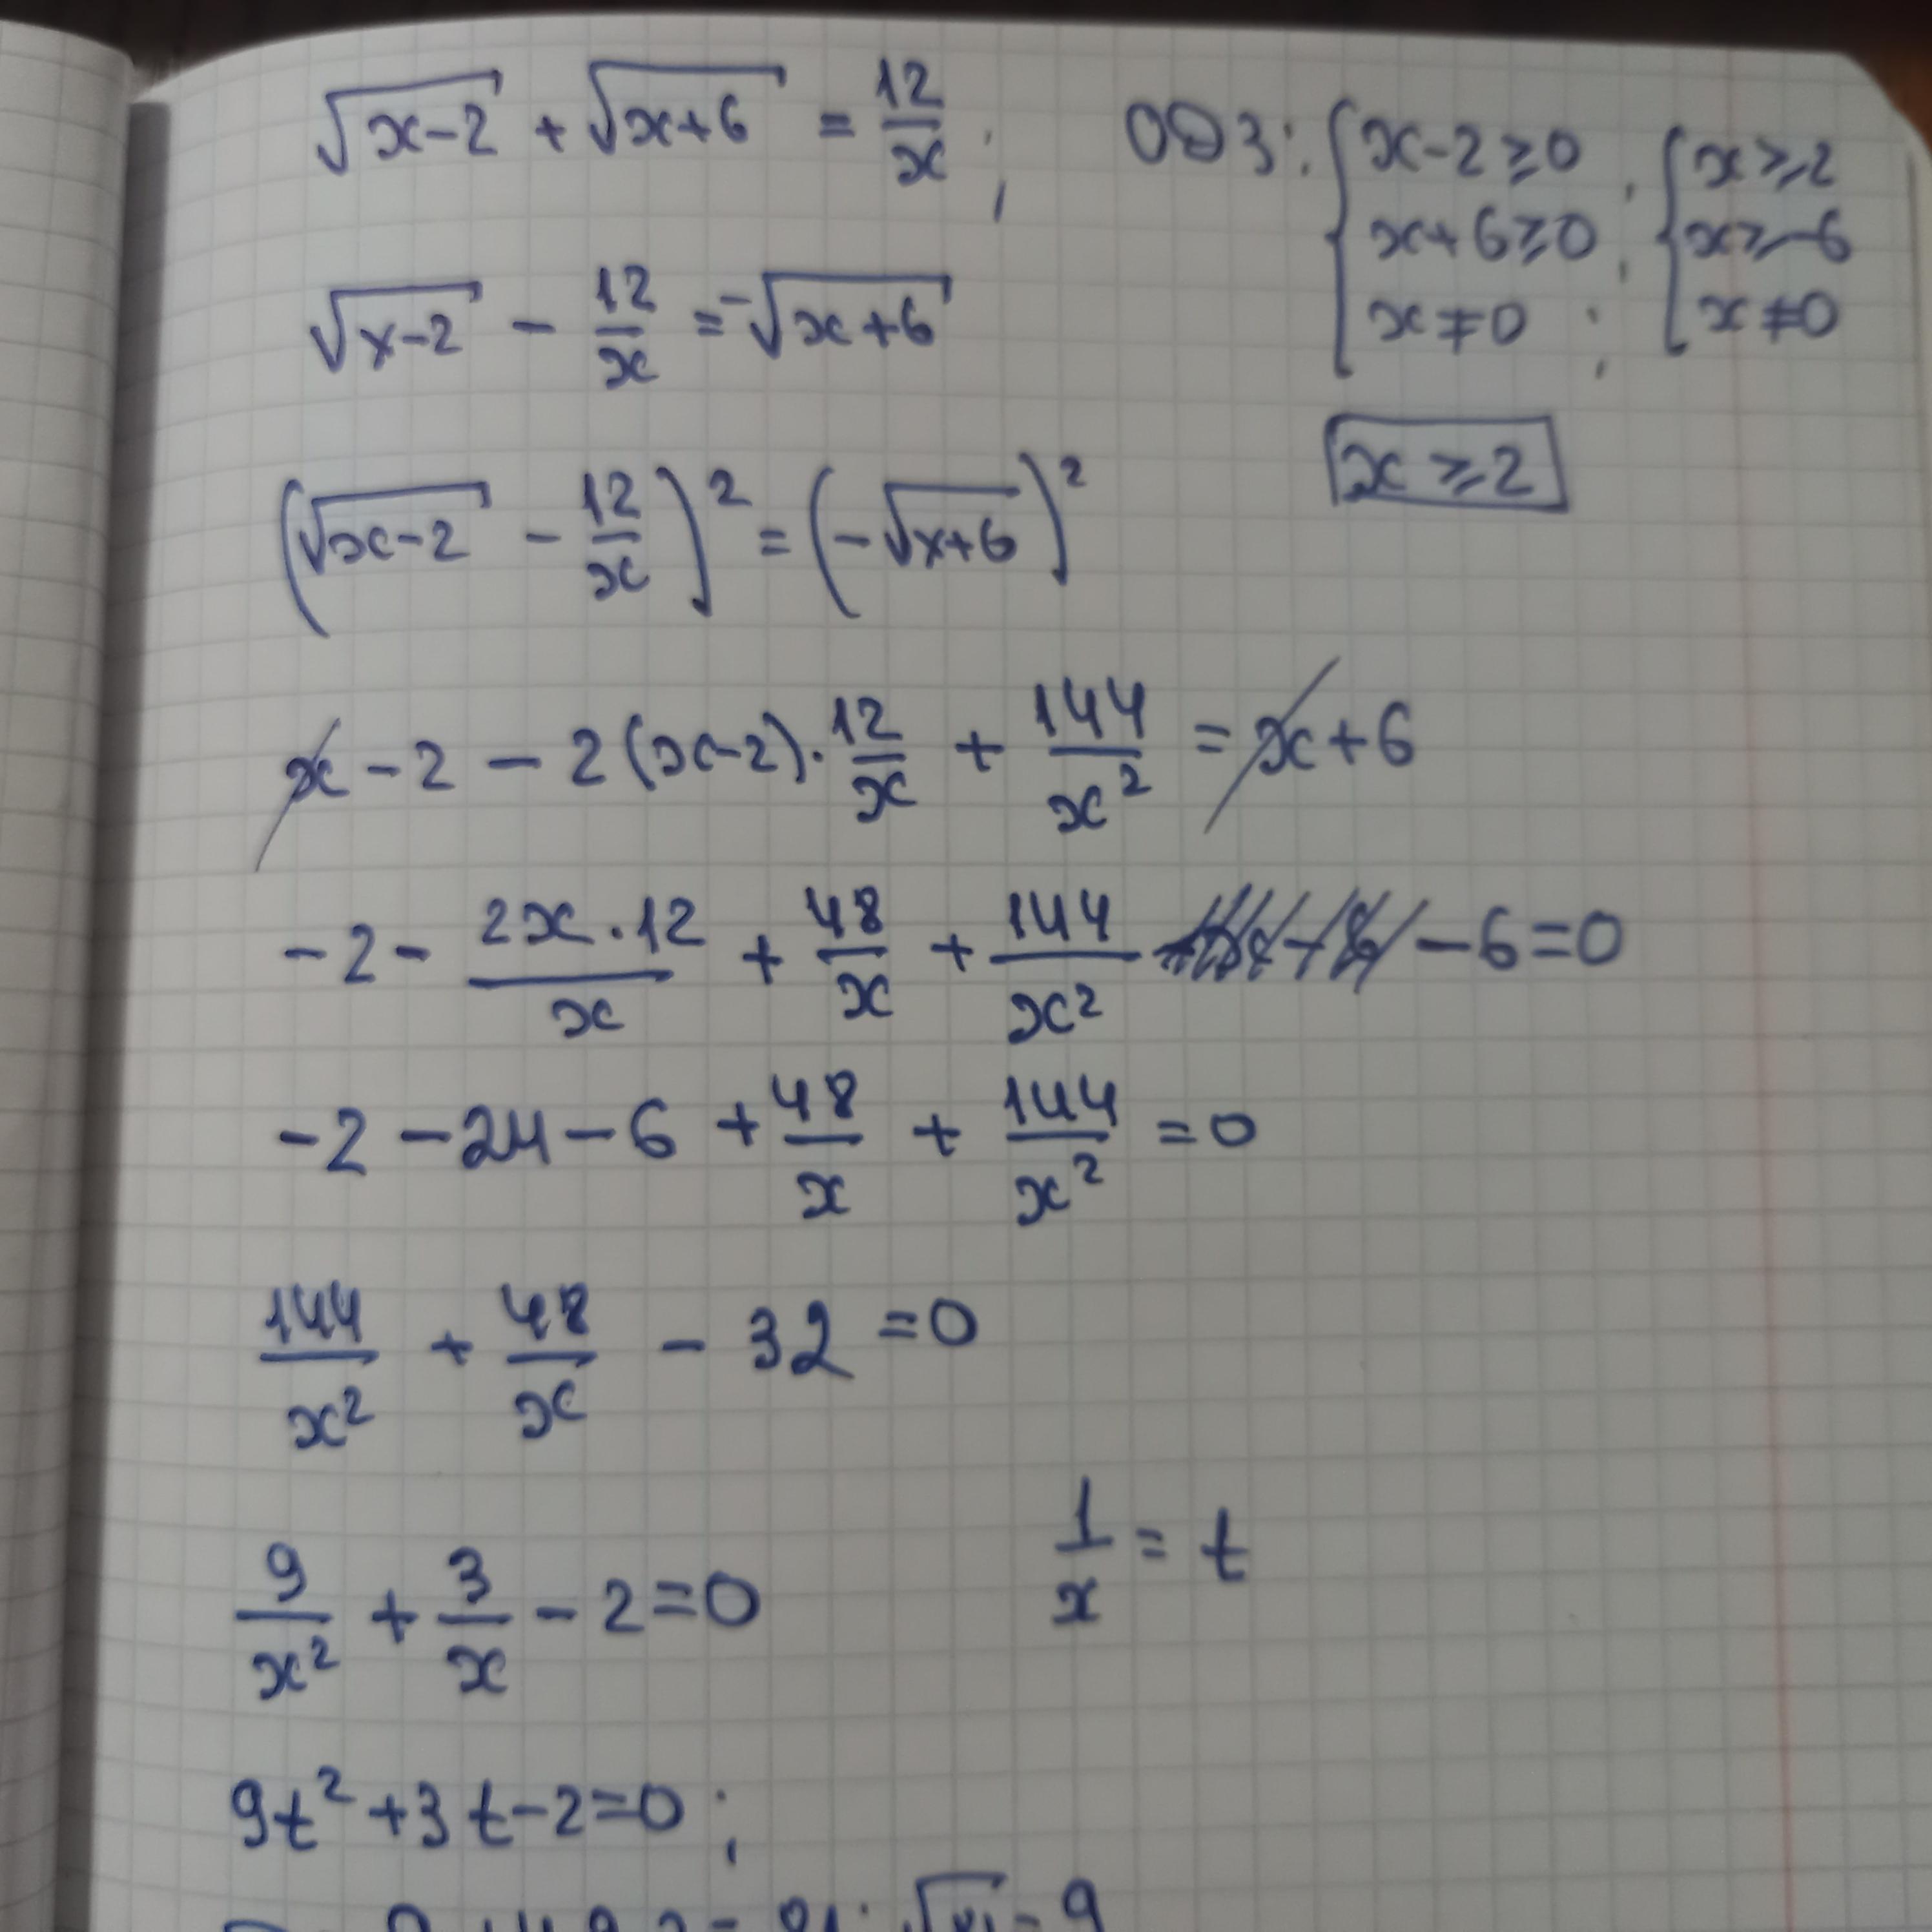 √(x-2) + √(x+6) = 12/x ;
ОДЗ: { x-2≥0 ; x+6≥0 ; x≠0 ; { x≥2 x≥-6 x≠0
√(x-2) - 12/x = -√(x+6)
x ≥ 2
(√(x-2) - 12/x)² = (-√(x+6))²
x - 2 - 2(x-2)·12/x + 144/x² = x + 6
-2 - 2x·12/x + 48/x + 144/x² - 6 = 0
-2 - 24 - 6 + 48/x + 144/x² = 0
144/x² + 48/x - 32 = 0
9/x² + 3/x - 2 = 0
1/x = t
9t² + 3t - 2 = 0 ;